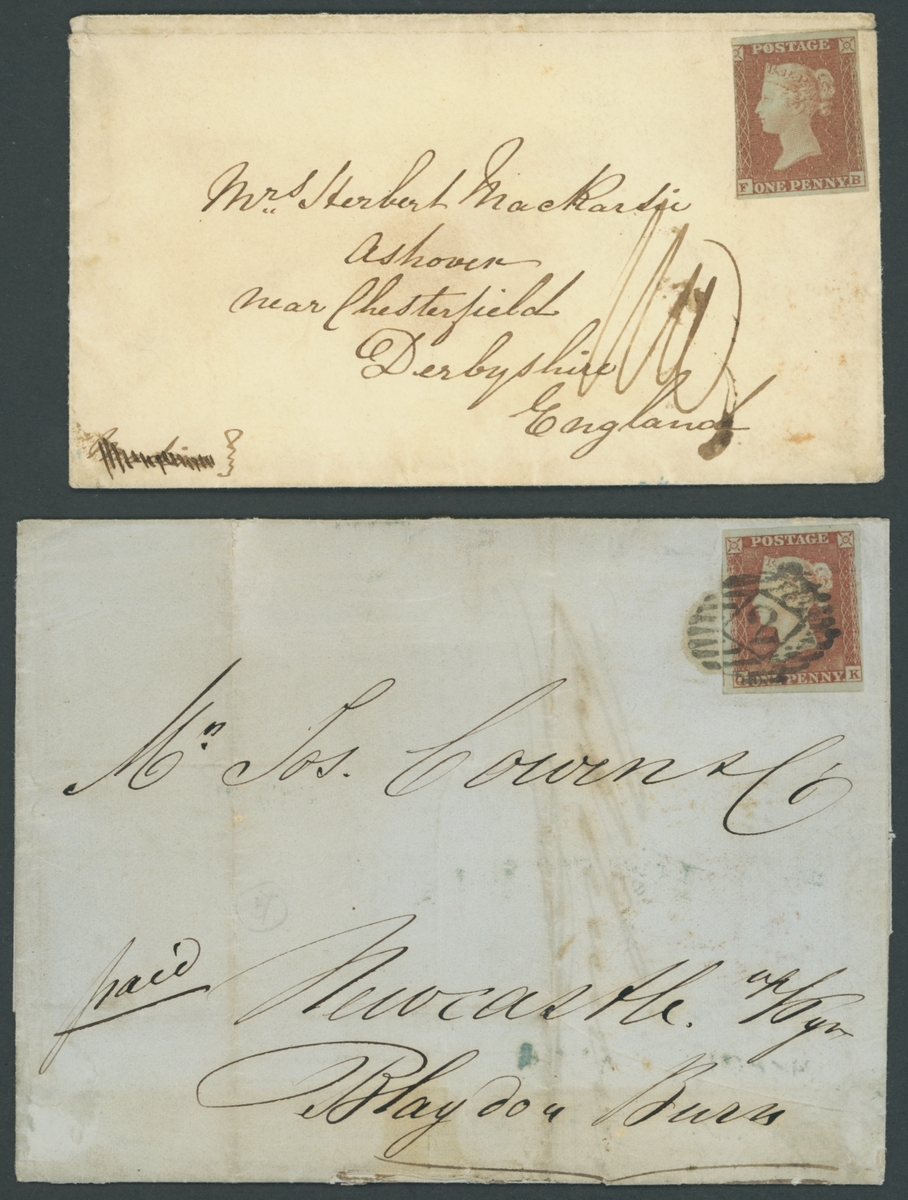 POSTAGE
F ONE PENNY B
Mrs Herbert Mackarsie
Ashover
near Chesterfield
Derbyshire
England
POSTAGE
2
Q ONE PENNY K
Mr Jos. Cowen & Co
paid
Newcastle up/Tyn
Blaydon Burn